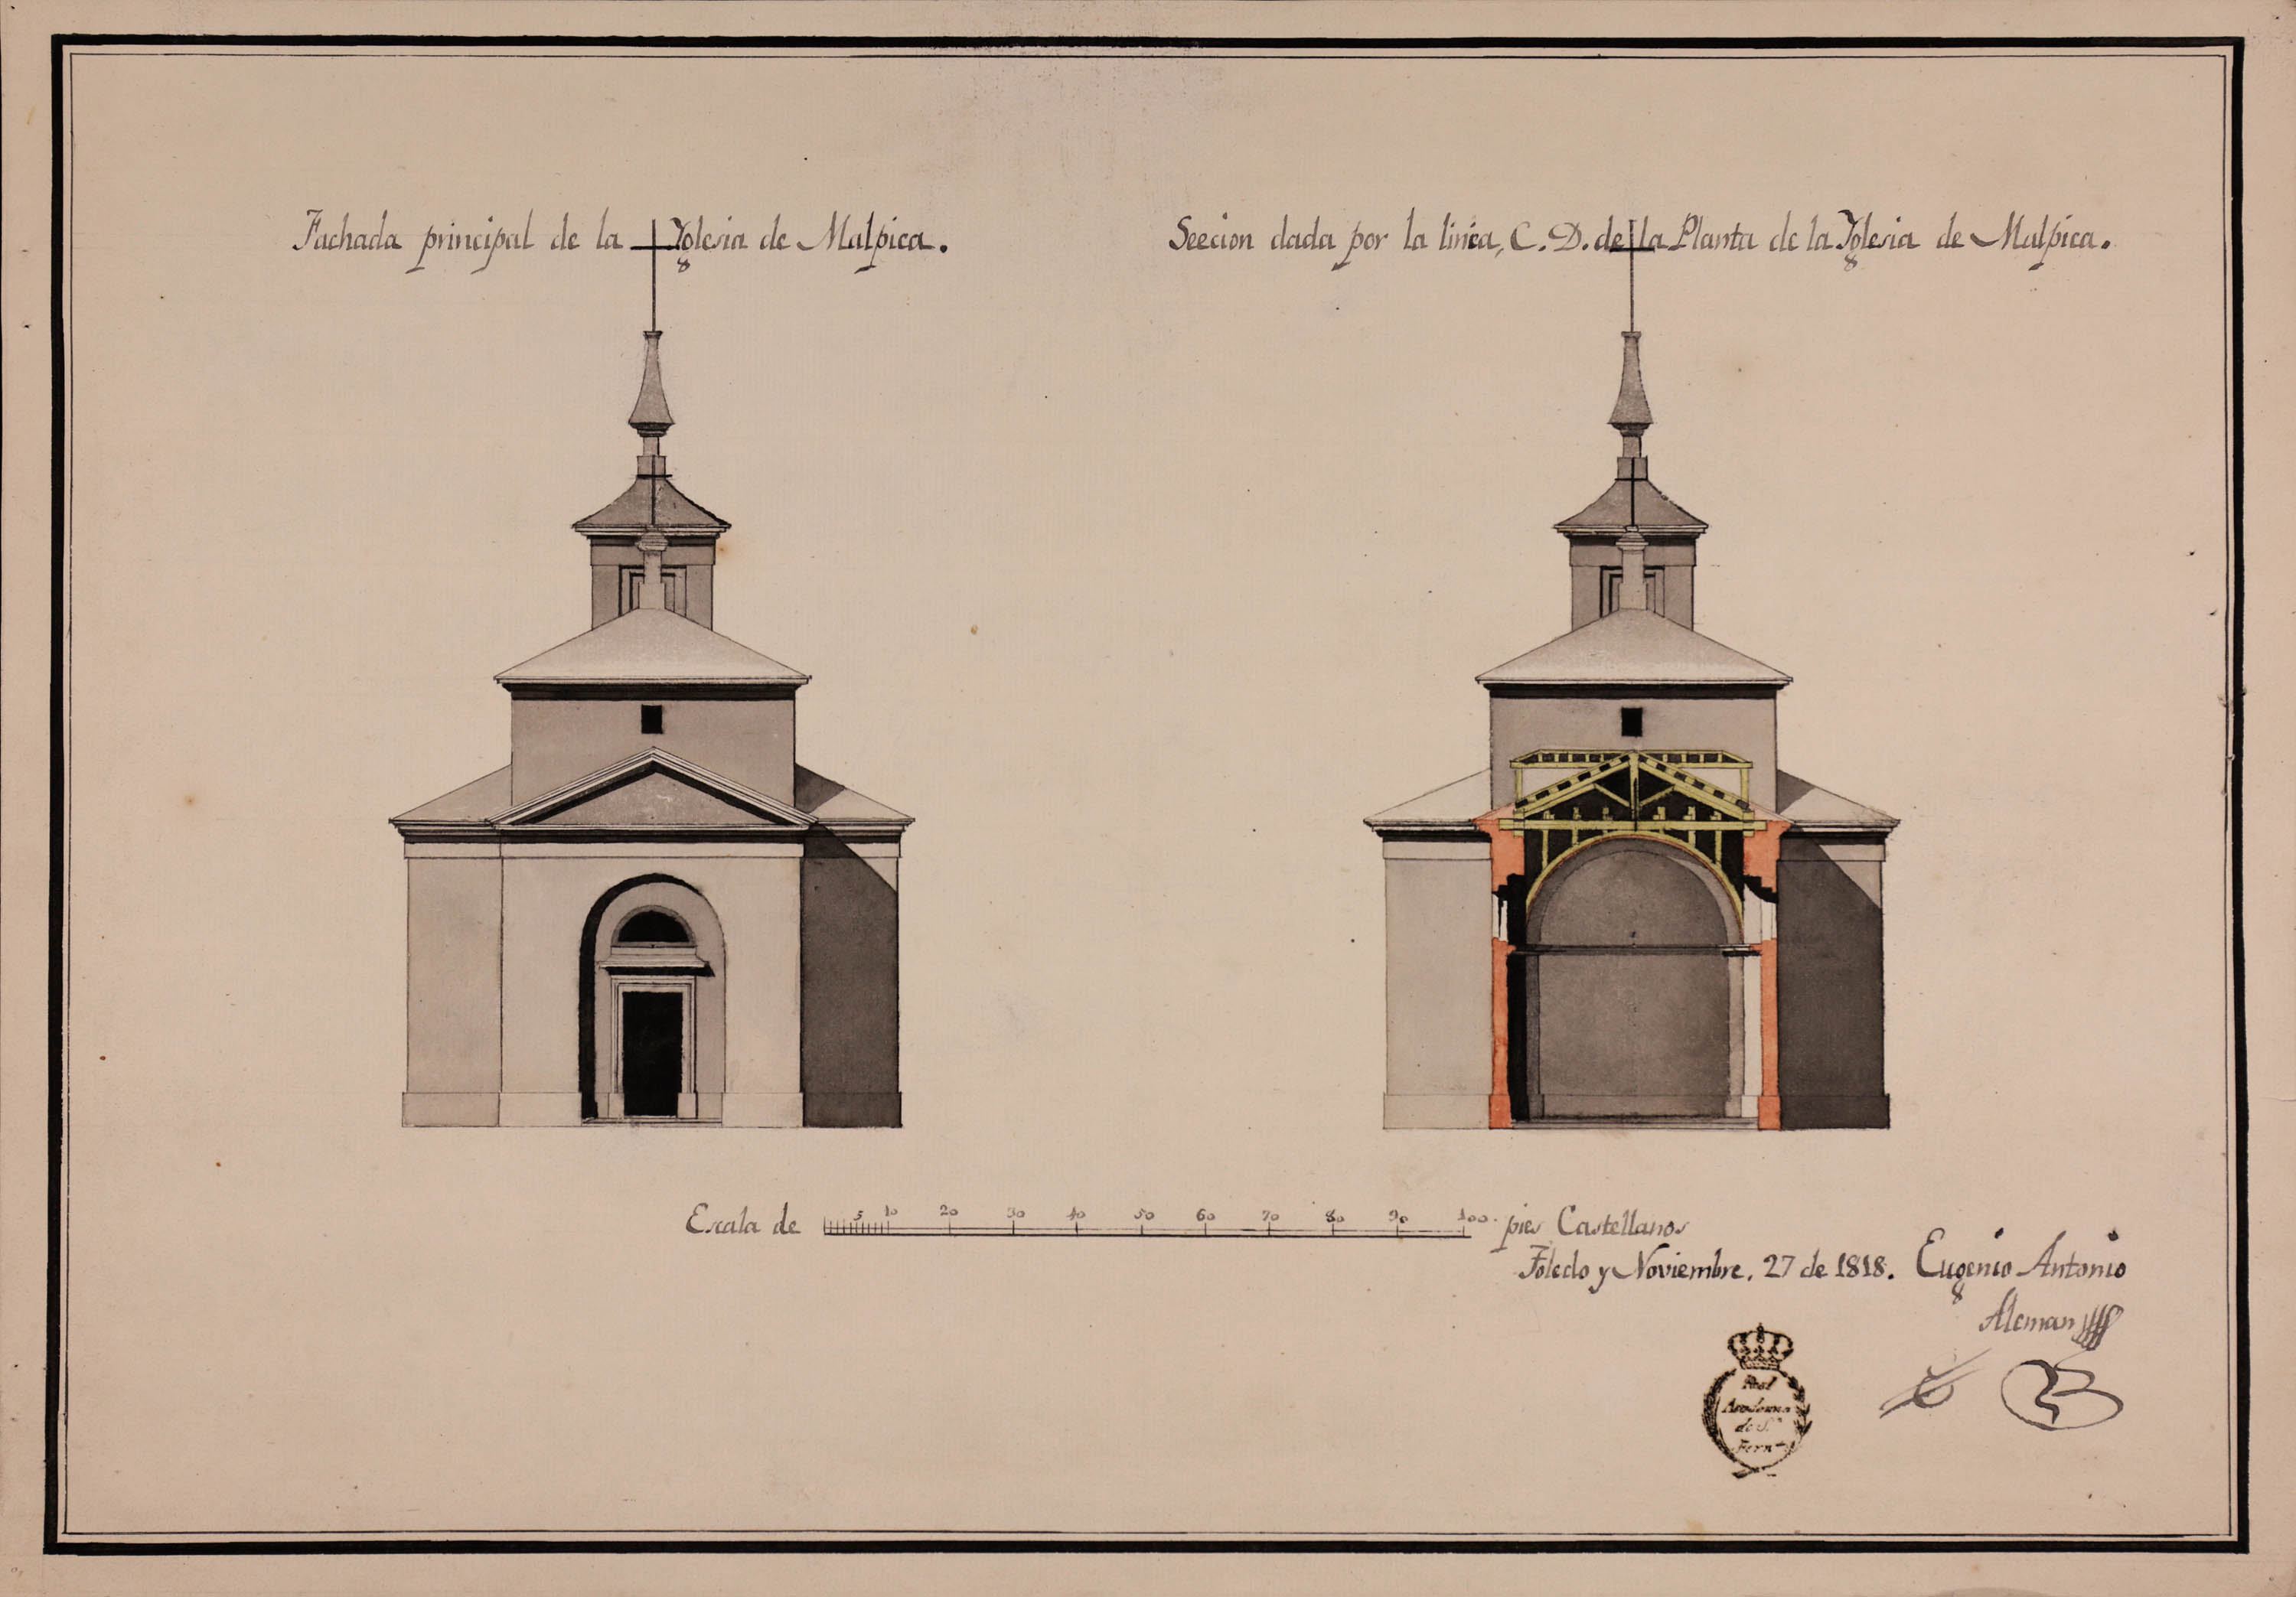 Fachada principal de la Yglesia de Malpica.
Seecion dada por la linéa, C. D. de la Planta de la Yglesia de Malpica.
Escala de 5 10 20 30 40 50 60 70 80 90 100. pies Castellanos
Toledo y Noviembre. 27 de 1818. Eugenio Antonio
Aleman
Real
Academia
de S.n
Fern.do